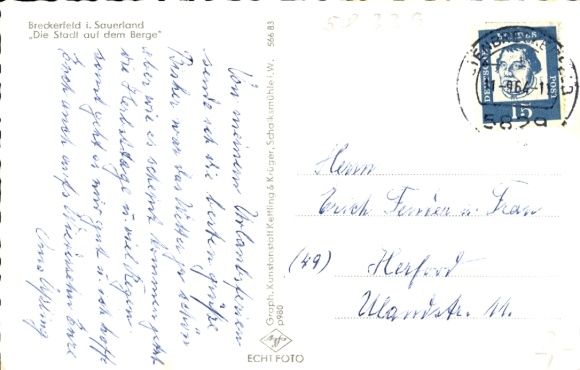 Breckerfeld i. Sauerland
„Die Stadt auf dem Berge"
Von meinem Urlaubsferien
sende ich die besten Grüße
Bisher war das Wetter schön
aber wie es scheint kommen jetzt
die Herbsttage u. viel Regen.
sonst geht es mir gut u. ich hoffe
Euch auch aufs Wiedersehn Eure
Graph. Kunstanstalt Kettling & Krüger, Schalksmühle i.W. 566 83
p980
Agfa
ECHT FOTO
DEUTSCHE BUNDESPOST
15
-9.64-11
5829
Herrn
Erich u. Frau
(49) Herford
Ulandstr. 11.